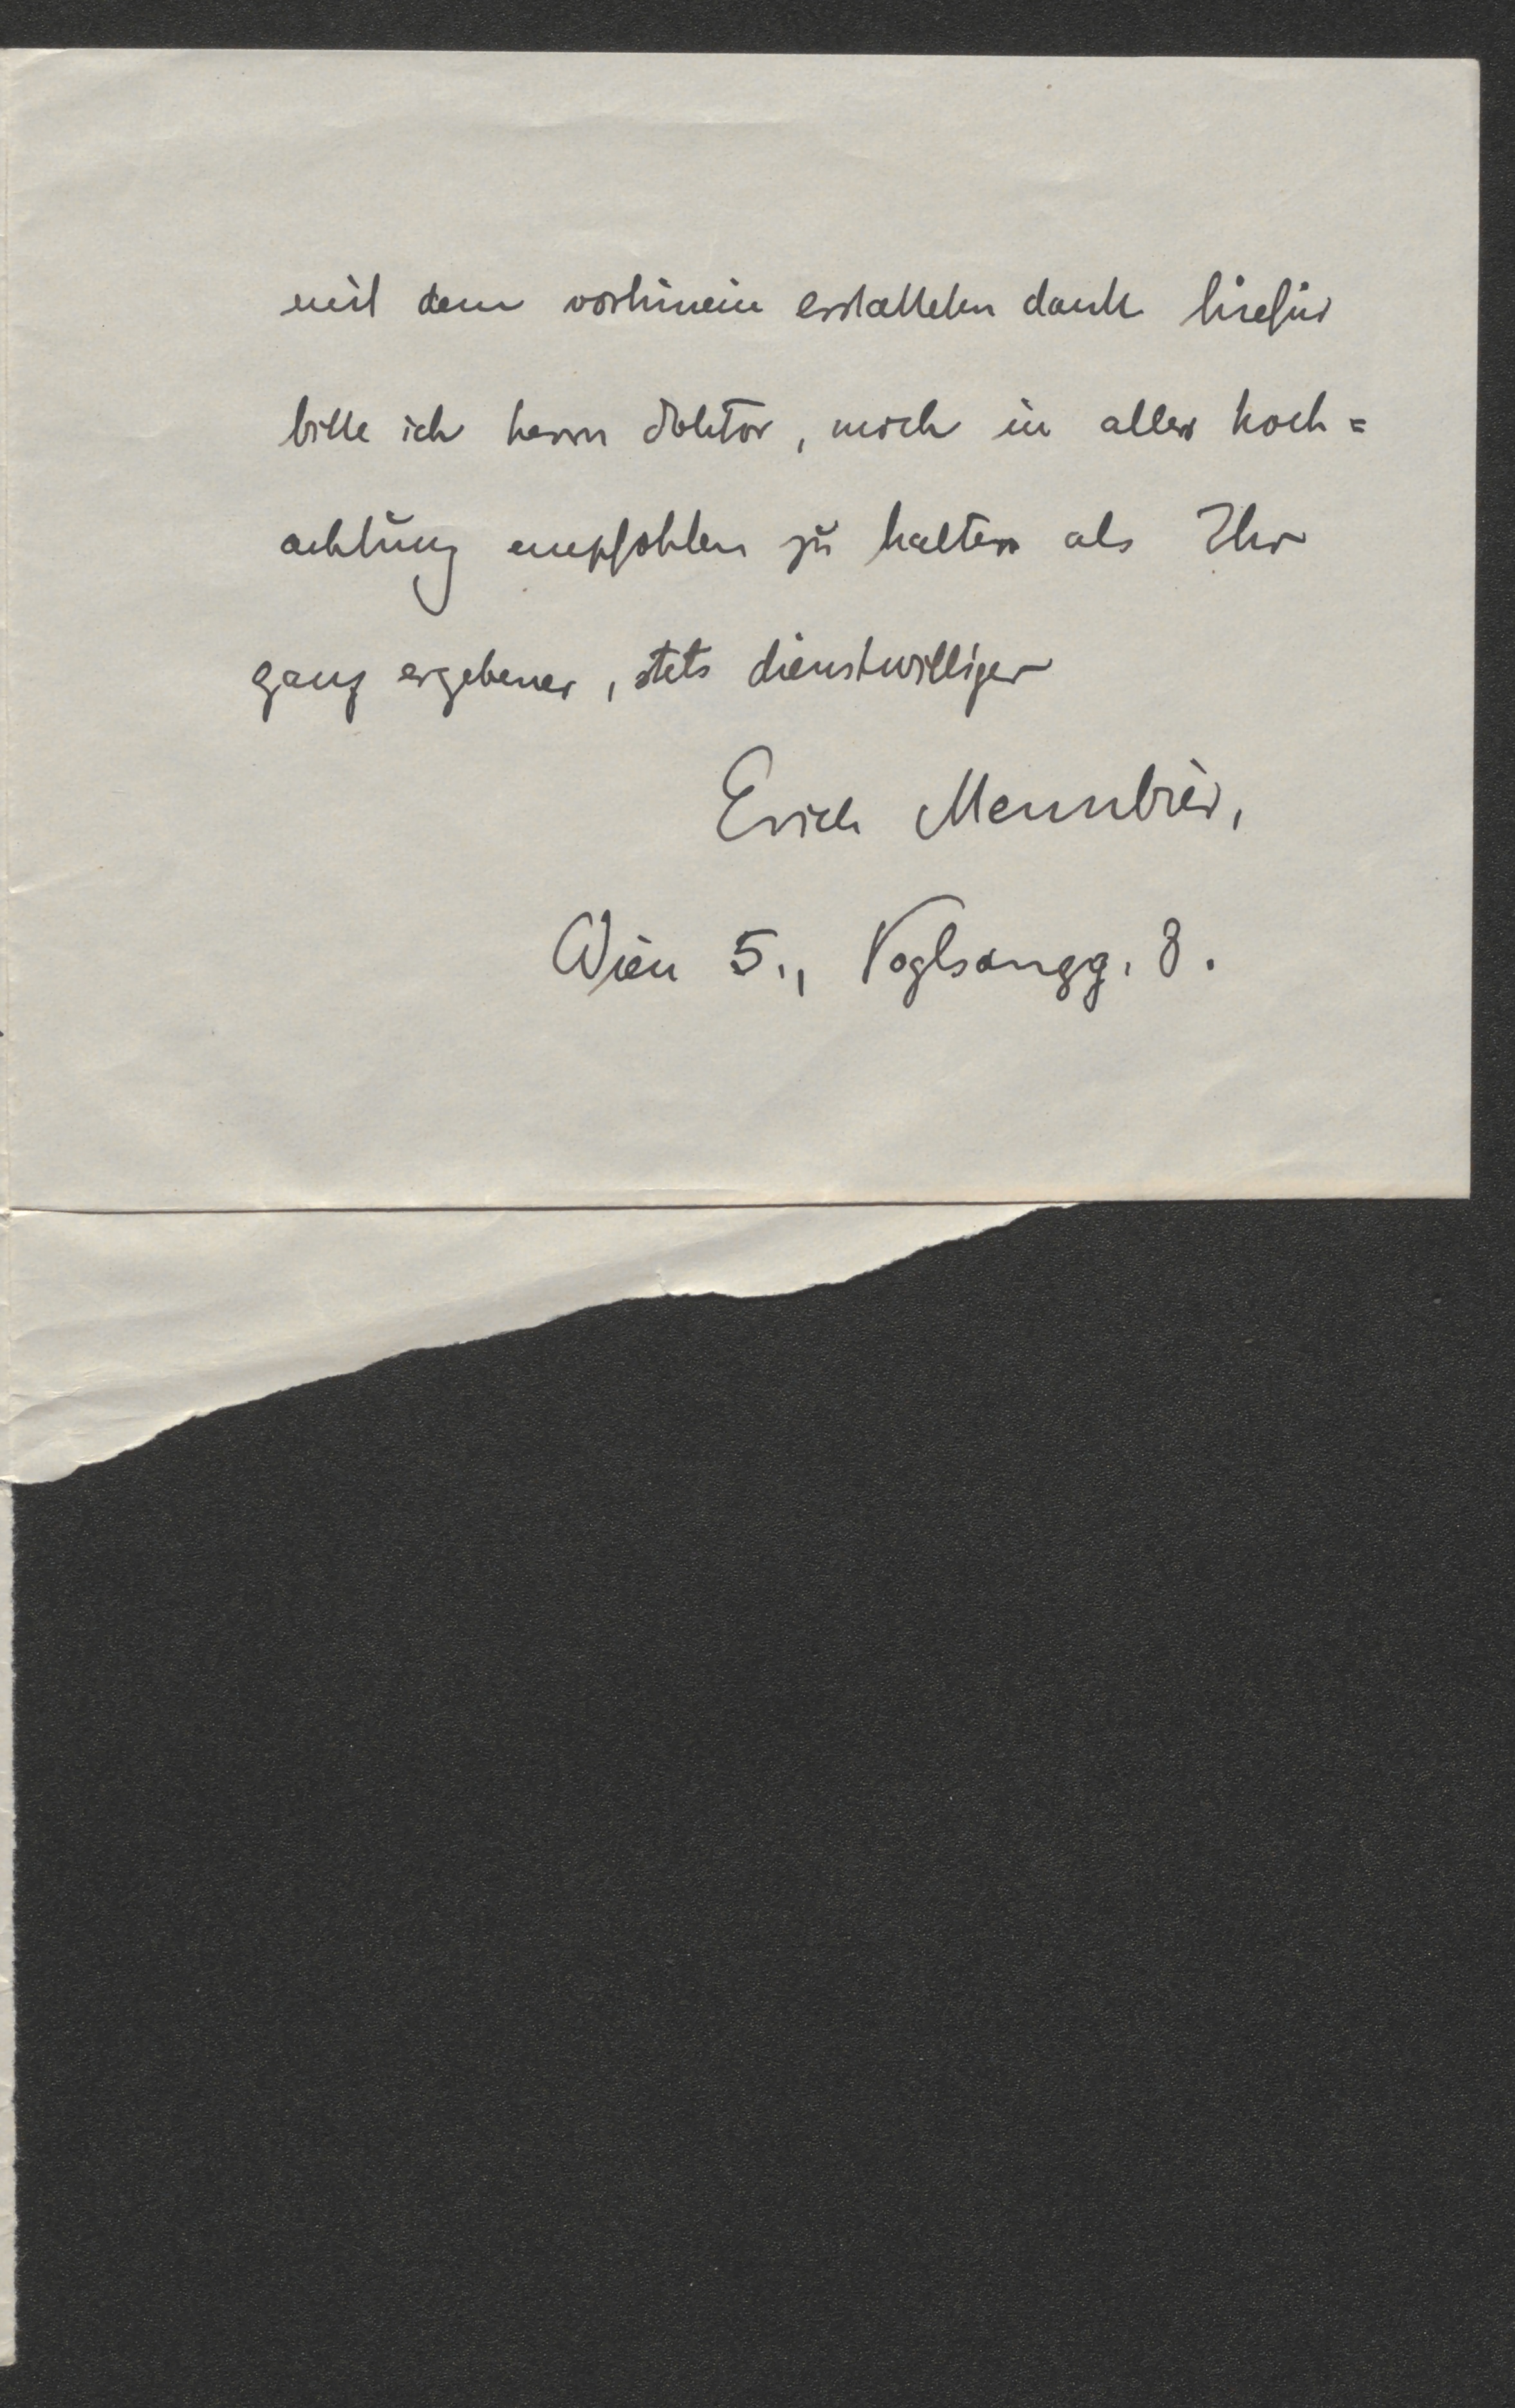 mit dem vorhinein erstatteten dank hiefür
bitte ich herrn doktor, mich in aller hoch=
achtung empfohlen zu halten als Ihr
ganz ergebener, stets dienstwilliger
Erich Mennbier,
Wien 5., Voglsangg. 8.